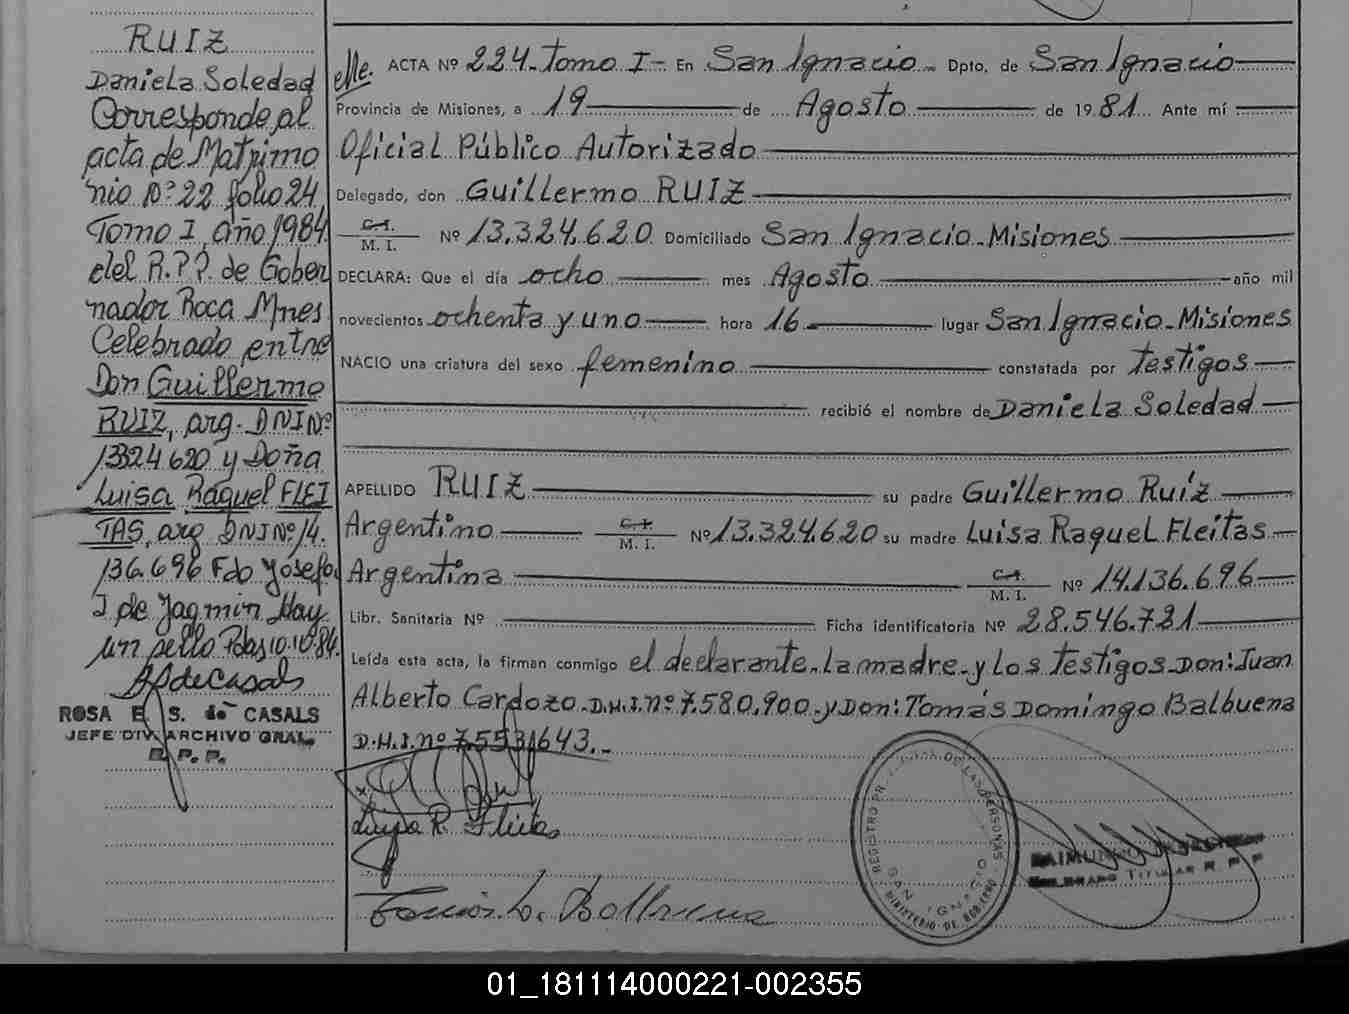 RUIZ
Daniela Soledad
Corresponde al
acta de Matrimo
nio Nº 22 folio 24
Tomo I, año 1984
del R.P.P. de Gober
nador Roca Mnes
Celebrado entre
Don Guillermo
RUIZ, arg. DNI Nº
13324620 y Doña
Luisa Raquel FLEI
TAS, arg DNI Nº 14.
136.696 Fdo Josefa
I de Jagmin Hay
un sello Pdas 10.10.84.
ROSA E. S. de CASALS
JEFE DIV. ARCHIVO GRAL.
R. P. P.
ACTA Nº 224. Tomo I - En San Ignacio - Dpto. de San Ignacio
Provincia de Misiones, a 19 de Agosto de 1981. Ante mí
Oficial Público Autorizado
Delegado, don Guillermo RUIZ
C. I.
M. I. Nº 13.324.620 Domiciliado San Ignacio - Misiones
DECLARA: Que el día ocho mes Agosto año mil
novecientos ochenta y uno hora 16 lugar San Ignacio - Misiones
NACIO una criatura del sexo femenino constatada por testigos
recibió el nombre de Daniela Soledad
APELLIDO RUIZ su padre Guillermo Ruíz
Argentino C. I.
M. I. Nº 13.324.620 su madre Luisa Raquel Fleitas
Argentina C. I.
M. I. Nº 14.136.696
Libr. Sanitaria Nº Ficha identificatoria Nº 28.546.721
Leída esta acta, la firman conmigo el declarante - La madre - y Los testigos Don: Juan
Alberto Cardozo - D.N.I. nº 7.580.900 - y Don: Tomás Domingo Balbuena
D.N.I. nº 7.553.643. -
Luisa R. Fleitas
Tomás D. Balbuena
REGISTRO PROVINCIAL DE LAS PERSONAS
SAN IGNACIO
MINISTERIO DE GOBIERNO
DELEGADO TITULAR R. P. P.
01_181114000221-002355